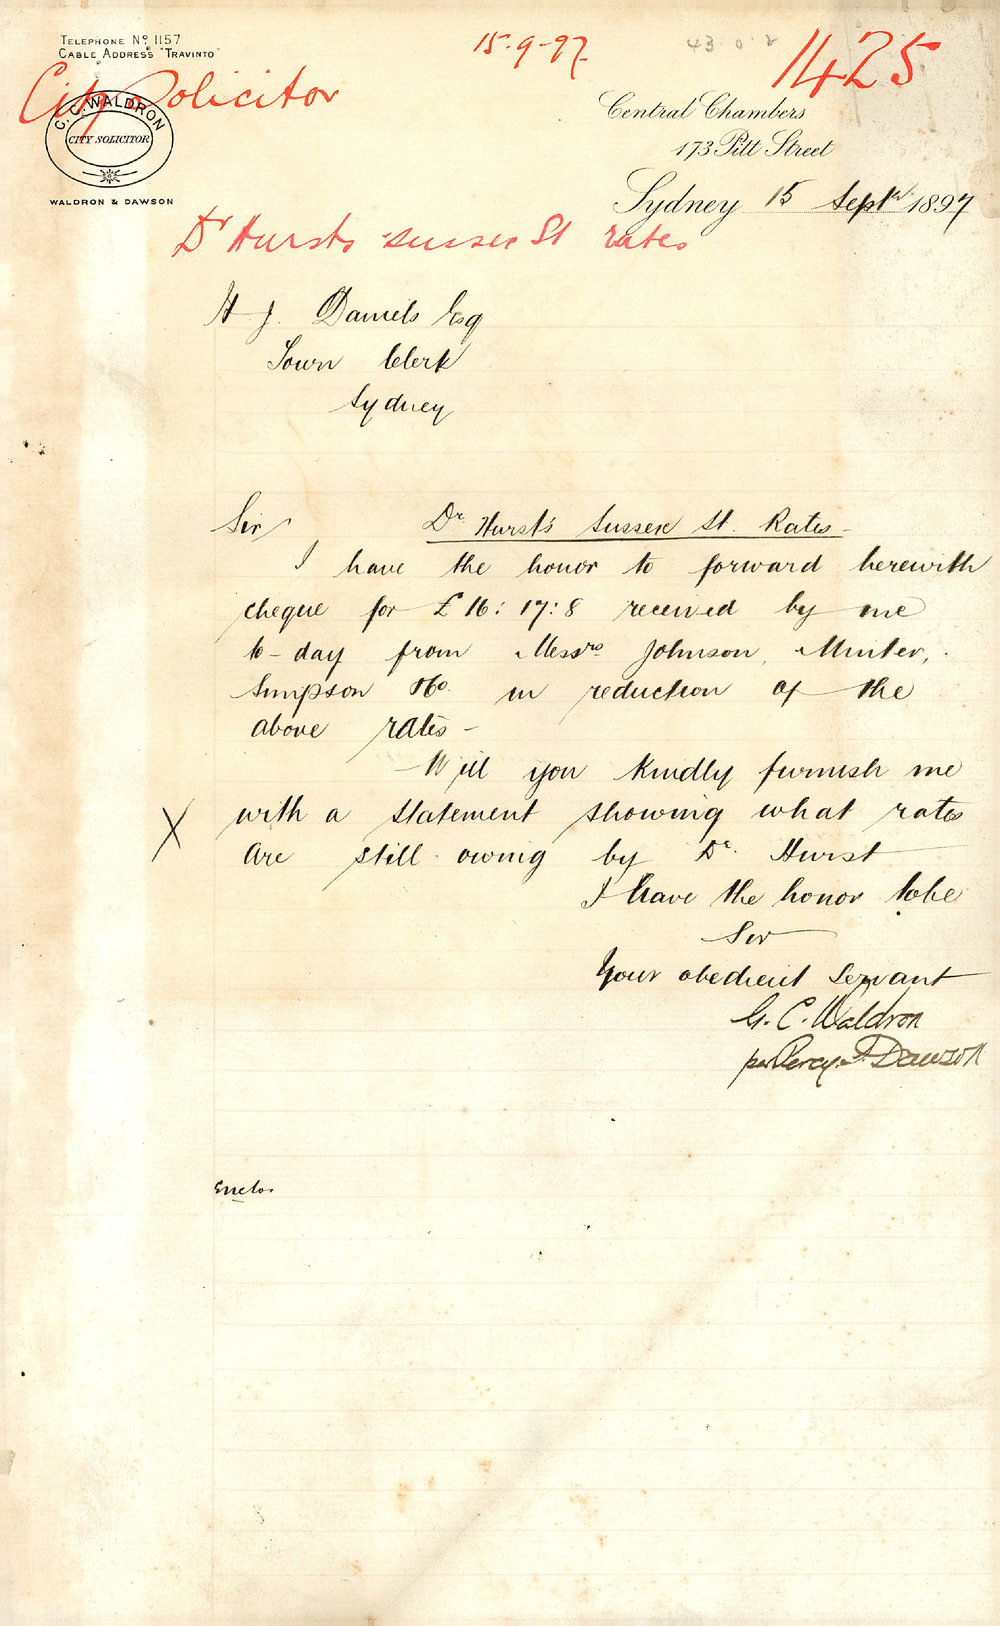 TELEPHONE No. 1157
CABLE ADDRESS "TRAVINTO"
15.9-97.
43 0 2
1425
City Solicitor
G.C. WALDRON
CITY SOLICITOR
WALDRON & DAWSON
Central Chambers
173 Pitt Street
Sydney 15 Septr 1897
Dr Hursts Sussex St rates
H J. Daniels Esq
Town Clerk
Sydney
Sir Dr. Hurst's Sussex St. Rates
I have the honor to forward herewith
cheque for £16:17:8 received by me
to-day from Messrs Johnson, Minter,
Simpson &Co. in reduction of the
above rates -
Will you kindly furnish me
X with a statement showing what rates
are still owing by Dr. Hurst
I have the honor to be
Sir
Your obedient servant
G. C. Waldron
per Percy. Dawson
Enclos